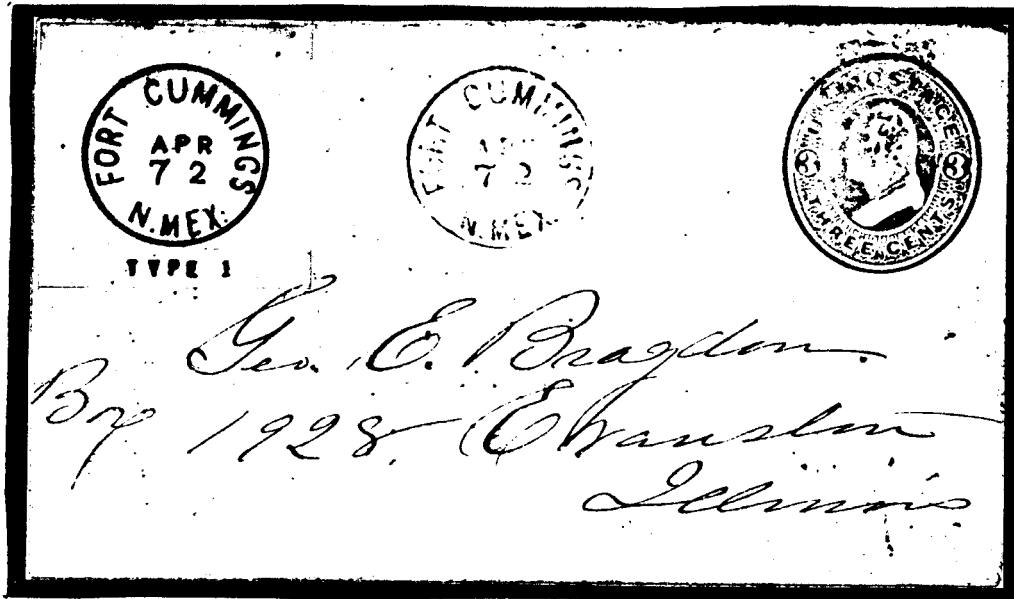 FORT CUMMINGS
APR
7 2
N. MEX.
TYPE 1
FORT CUMMINGS
APR
7 2
N. MEX.
U.S. POSTAGE
3 3
THREE CENTS
Geo. E. Bragdon.
Box 1928. Evanston
Illinois